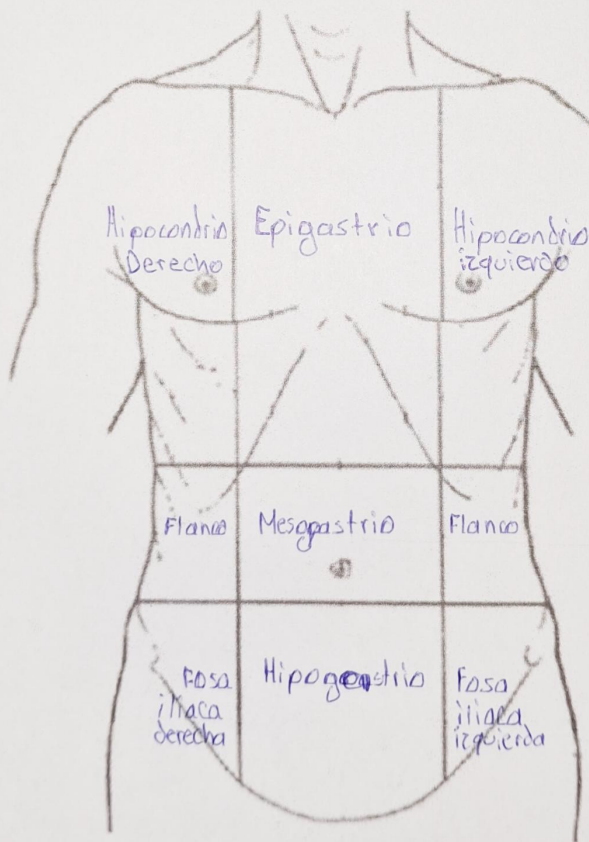 Hipocondrio
Derecho
Epigastrio
Hipocondrio
izquierdo
Flanco
Mesogastrio
Flanco
Fosa
iliaca
derecha
Hipogastrio
Fosa
iliaca
izquierda